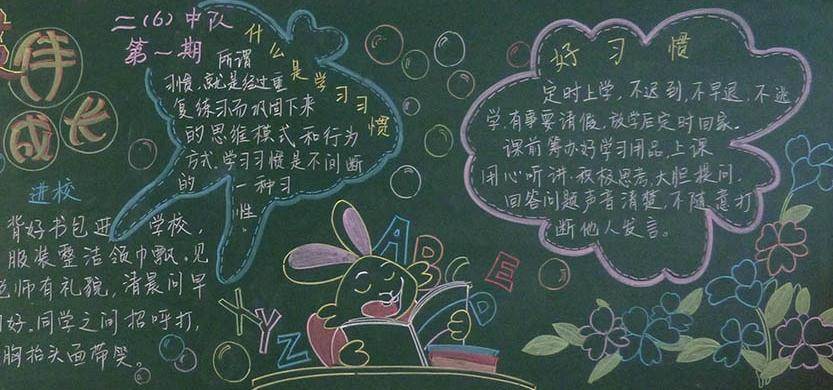 伴
成长
二(6)中队
第一期
什么是学习习惯
所谓
习惯,就是经过重
复练习而巩固下来
的思维模式和行为
方式,学习习惯是不间断
的一种习
性。
进校
背好书包进学校,
服装整洁领巾飘。见
老师有礼貌,清晨问早
问好.同学之间招呼打,
胸抬头面带笑。
好习惯
定时上学,不迟到,不早退,不逃
学,有事要请假,放学后定时回家。
课前筹办好学习用品,上课
用心听讲,积极思考,大胆提问.
回答问题声音清楚,不随意打
断他人发言。
ABC
D
E
XYZ